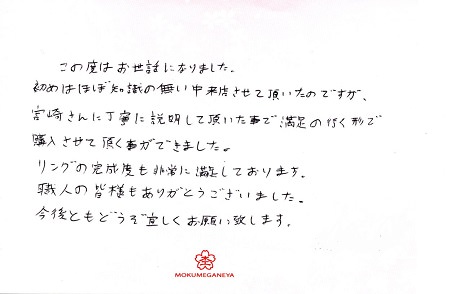 この度はお世話になりました。
初めはほぼ知識の無い中来店させて頂いたのですが、
宮崎さんに丁寧に説明して頂いた事で満足の行く形で
購入させて頂く事ができました。
リングの完成度も非常に満足しております。
職人の皆様もありがとうございました。
今後ともどうぞ宜しくお願い致します。
MOKUMEGANEYA